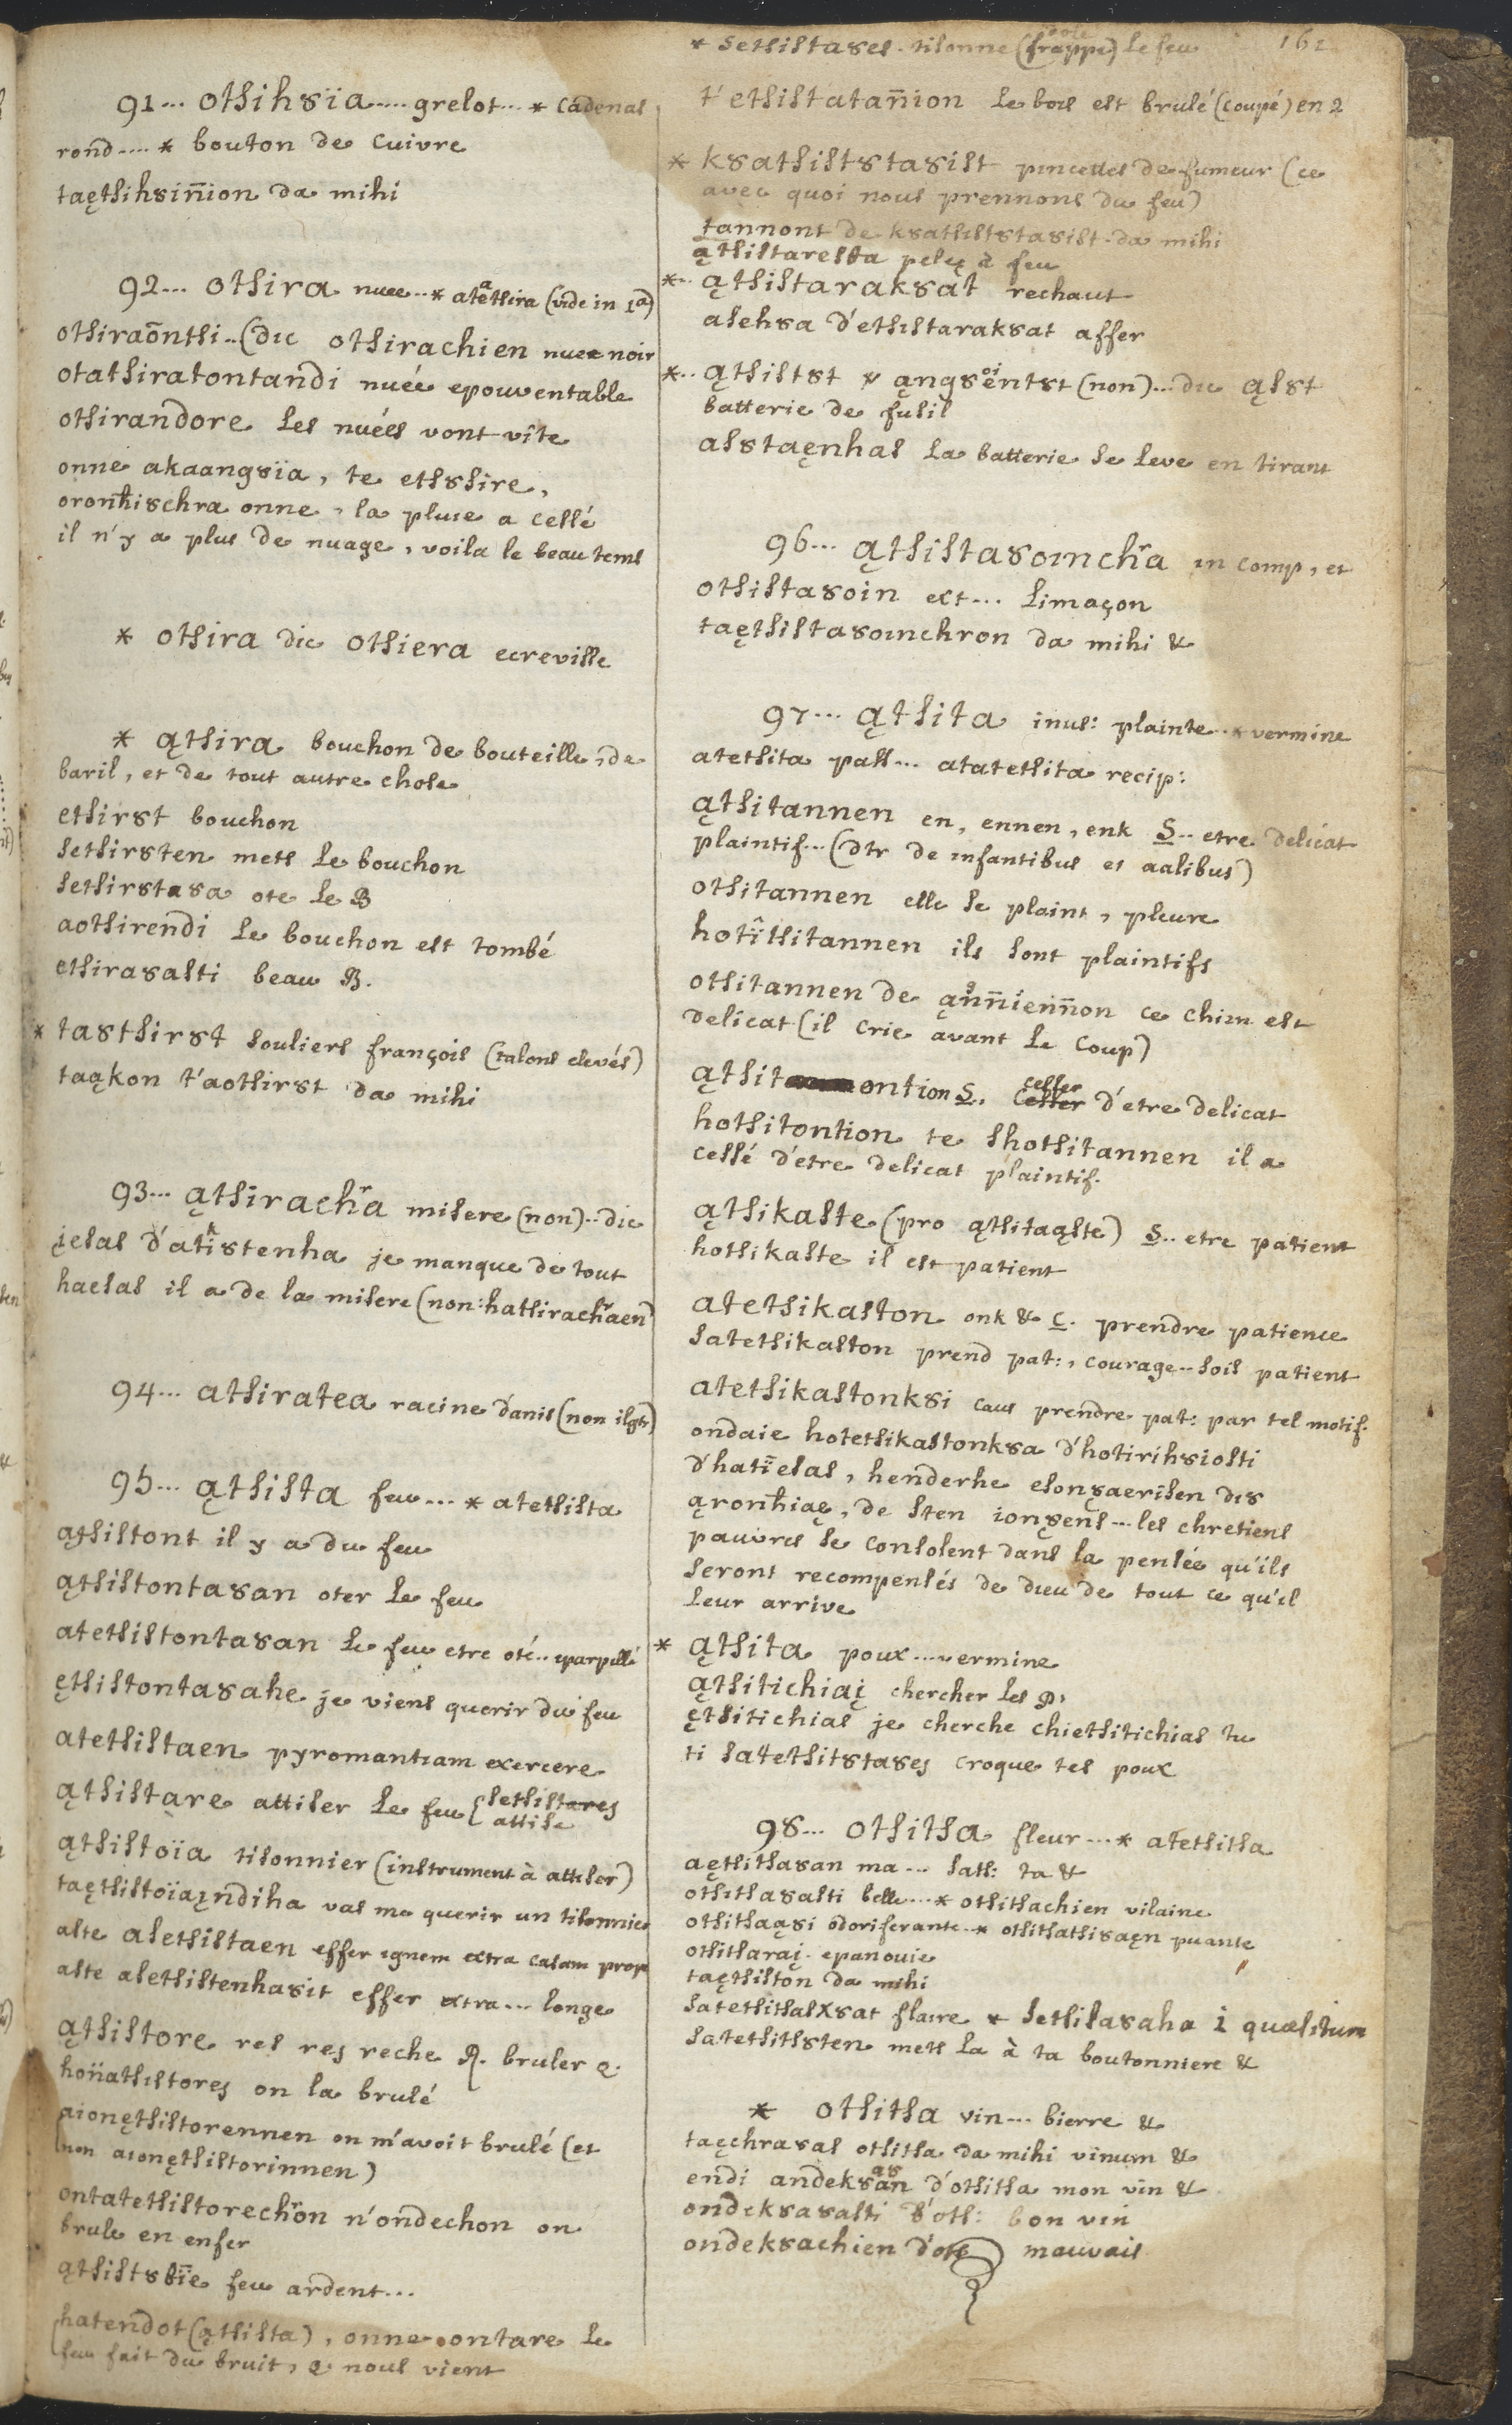 91... otsih8ia..... grelot... * cadenas
rond.... * bouton de cuivre
taętsih8iñion da mihi
92... otsira nuee... * atetsira (vide in 1ª)
otsiraõntsi.. (dic otsirachien nuee noir
otatsiratontandi nuée epouventable
otsirandore les nuées vont vîte
onne akaang8ïa, te ets8sire,
oronhi8chra onne, la pluie a cessé
il n'y a plus de nuage, voila le beau tems
* otsira dic otsiera ecreville
* ątsira bouchon de bouteille, de
baril, et de tout autre chose
etsir8t bouchon
setsir8ten mets le bouchon
setsir8ta8a ote le B
aotsirendi le bouchon est tombé
etsira8asti beau B.
* ta8tsir8t souliers françois (talons elevés)
taąkon t'aotsir8t da mihi
93... ątsirachra misere (non).. dic
įesas d'ati8tenha je manque de tout
haesas il a de la misere (non: hatsirachraen)
94... atsiratea racine d'anis (non ilgr)
95... ątsista feu... * atetsista
ątsistont il y a du feu
ątsistonta8an oter le feu
atetsistonta8an le feu etre oté.. eparpillé
ętsistonta8ahe je viens querir du feu
atetsistaen pyromantiam exercere
ątsistare attiser le feu { setsistares
attise
ątsistoïa tisonnier (instrument à attiser)
taętsistoïaįndiha vas me querir un tisonnier
aste asetsistaen effer ignem extra casam prope
aste asetsistenha8it effer extra... longe
ątsistore res rej reche R. bruler q.
hoñatsistorej on la brulé
aionętsistorennen on m'avoit brulé (et
non aionętsistorinnen)
ontatetsistorechron n'ondechon on
brule en enfer
ątsist8tie feu ardent...
hatendot (ątsista), onne ontare le
feu fait du bruit, q. nous vient
* setsista8es. tisonne (frappe) le feu 161
t'etsistatañion le bois est brulé (coupé) en 2
* k8atsist8ta8ist pincettes de fumeur (ce
avec quoi nous prennons du feu)
tannont de k8atsist8ta8ist da mihi
ątsistaresta pele à feu
*.. ątsistarak8at rechaut
asehsa d'etsistarak8at affer
*.. ątsist8t ąng8ent8t (non)... dic ąs8t
batterie de fusil
as8taęnhas la batterie se leve en tirant
96... ątsista8oinchra in comp, et
otsista8oin ext... limaçon
taętsista8oinchron da mihi &
97... ątsita inus: plainte... * vermine
atetsita pass... atatetsita recip:
ątsitannen en, ennen, enk S.. etre delicat
plaintif... (dtr de infantibus et aalibus)
otsitannen elle se plaint, pleure
hotïtsitannen ils sont plaintifs
otsitannen de ąnñienñon ce chien est
delicat (il crie avant le coup)
ątsitontion S. cesser d'etre delicat
hotsitontion te shotsitannen il a
cessé d'etre delicat plaintif.
ątsikaste (pro ątsitaąste) S.. etre patient
hotsikaste il est patient
atetsikaston onk & C. prendre patience
satetsikaston prend pat:, courage.. sois patient
atetsikastonk8i caus prendre pat: par tel motif.
ondaie hotetsikastonk8a d'hotirih8iosti
d'hatïesas, henderhe eson8aerisen di8
ąronhiaę, de sten ion8ens... les chretiens
pauvres se consolent dans la pensée qu'ils
seront recompensés de dieu de tout ce qu'il
leur arrive
* ątsita poux... vermine
ątsitichiaį chercher les P.
ętsitichias je cherche chietsitichias tu
ti satetsit8ta8ej croque tes poux
98... otsitsa fleur... * atetsitsa
aętsitsa8an ma... sats: ta &
otsitsa8asti belle... * otsitsachien vilaine
otsitsaą8i odoriferante.. * otsitsatsi8aęn puante
otsitsaraį. epanouie
taętsitson da mihi
satetsitsasx8at flaire * setsitsa8aha i quæsitum
satetsits8ten mets la à ta boutonniere &
* otsitsa vin... bierre &
taęchra8as otsitsa da mihi vinum &
endi andek8an d'otsitsa mon vin &
ondek8a8asti d'ots: bon vin
ondek8achien d'ots mauvais